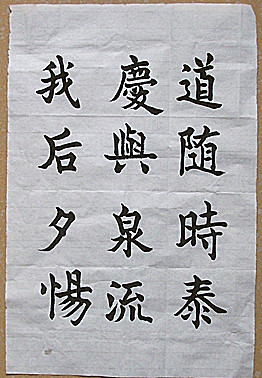 道随時泰
慶與泉流
我后夕惕